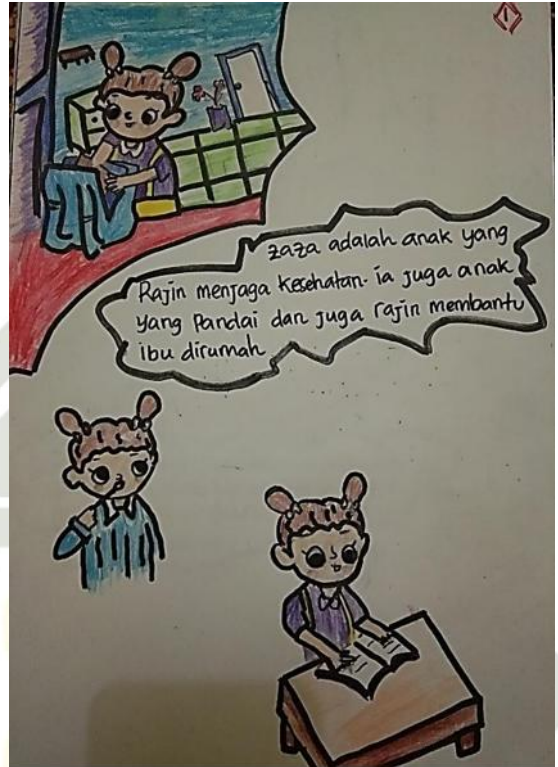 1
zaza adalah anak yang
Rajin menjaga kesehatan. ia juga anak
yang Pandai dan juga rajin membantu
ibu dirumah